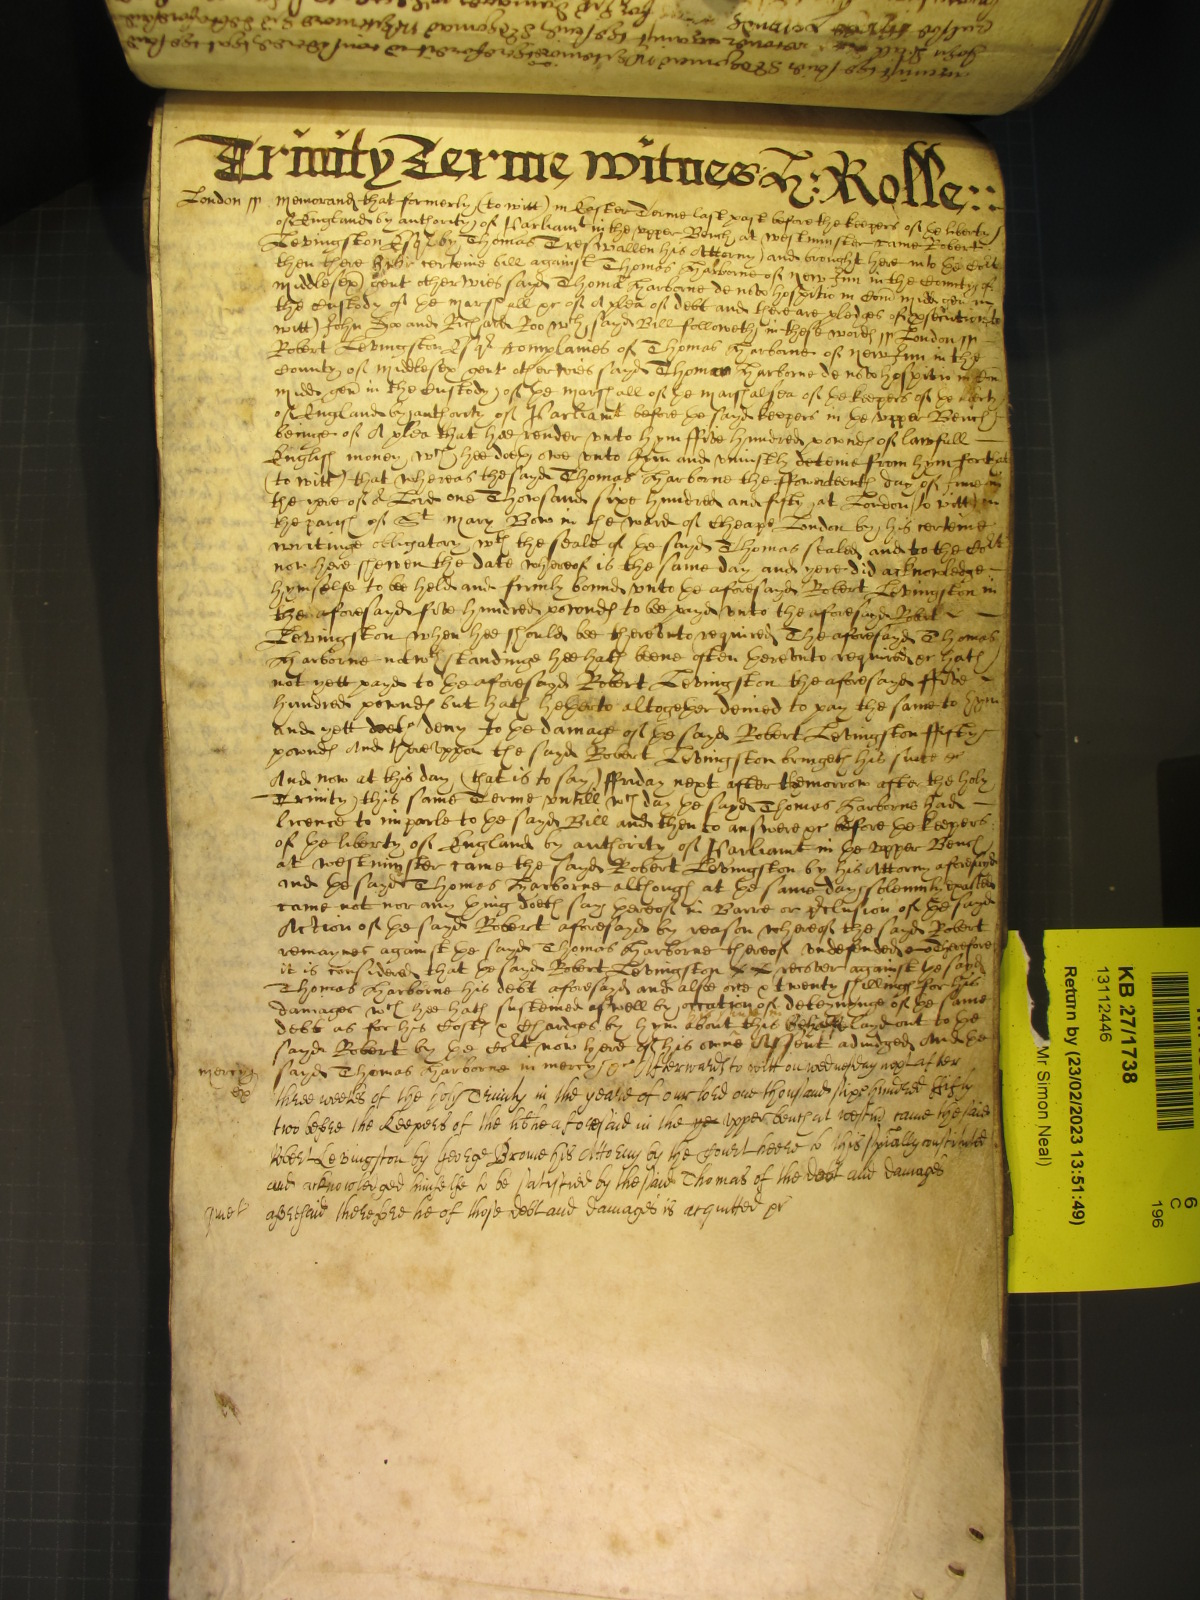 Trinity Terme witnes H: Rolle
London ss Memorand that formerly (to witt) in Easter Terme last past before the keepers of ye liberty
of England by authority of Parliamt in the vpper Bench at Westminster came Robert
Levingston Esqr by Thomas Treswallen his Attorny and brought here into ye Court
then there his certeine bill against Thomas Harborne of New Inn in the County of
Middlesex gent otherwies sayd Thomas Harborne de novo hospitio in Com Midd gen in
the Custody of ye marshall &c of A plea of debt and there are pledges of prosecution to
witt John Doo and Richard Roo wch sayd Bill followeth in these words ss London ss
Robert Levingston Esqr Complaines of Thomas Harborne of New Inn in the
County of Middlesex gent otherwies sayd Thomas Harborne de novo hospitio in Com
Midd gen in the Custody of ye marshall of ye marshalsea of ye keepers of ye liberty
of England by authority of Parliamt before ye sayd keepers in ye vpper Bench
beinge of A plea that hee render vnto hym ffive hundred pownds of lawfull
English money wch hee doeth owe vnto hym and vniustly deteine from hym for that
(to witt) that whereas the sayd Thomas Harborne the ffowerteenth day of June in
the yere of or Lord one Thowsand sixe hundred and fifty at London (to witt) in
the parish of St Mary Bow in the ward of Cheape London by his certeine
writinge obligatory wth the seale of ye sayd Thomas sealed and to the Court
now here shewen the date whereof is the same day and yere did acknowledge
hymselfe to be held and firmly bound vnto ye aforesayd Robert Levingston in
the aforesayd five hundred pownds to bee payd vnto the aforesayd Robert
Levingston when hee should bee therevnto required The aforesayd Thomas
Harborne notwthstandinge hee hath beene often herevnto required &c hath
not yett payd to ye aforesayd Robert Levingston the aforesayd ffive
hundred pownds but hath hitherto altogether denied to pay the same to hym
and yett doeth deny To ye damage of ye sayd Robert Levingston ffifty
pownds And therevppon the sayd Robert Levingston bringeth his suite &c
And now at this day (that is to say) ffriday next after the morrow after the holy
Trinity this same Terme vntill wch day ye sayd Thomas Harborne had
licence to imparle to ye sayd Bill and then to answere &c before ye keepers
of ye liberty of England by authority of Parliamt in ye vpper Bench
at Westminster came the sayd Robert Levingston by his Attorny aforesayd
And ye sayd Thomas Harborne although at ye same day solemnly exacted
came not nor any thing doeth say hereof in Barre or preclusion of ye sayd
Action of ye sayd Robert aforesayd by reason whereof the sayd Robert
remaynes against ye sayd Thomas Harborne thereof vndefended Therefore
it is considered that ye sayd Robert Levingston recover against ye sayd
Thomas Harborne his debt aforesayd and alsoe one & twenty shillings for his
damages wch hee hath susteined aswell by occation of deteyninge of ye same
debt as for his Costs & Chardges by hym about his layd out to ye
sayd Robert by ye Court now here of his owne Assent adiudged And ye
mercy sayd Thomas Harborne in mercy &c Afterwards to witt on wednesday next after
three weekes of the holy Trinity in the yeare of our lord one thousand sixe hundred fifty
two before the Keepers of the libtie aforesaid in the upper bench at Westmr came the said
Robert Levingston by George Browne his Attorny by the Court heere to this specially constituted
and acknowledged himselfe to be satisfied by the said Thomas of the debt and damages
aforesaid therefore he of those debt and damages is acquitted &c
KB 27/1738
13112446
Return by (23/02/2023 13:51:49)
Mr Simon Neal)
6
C
196